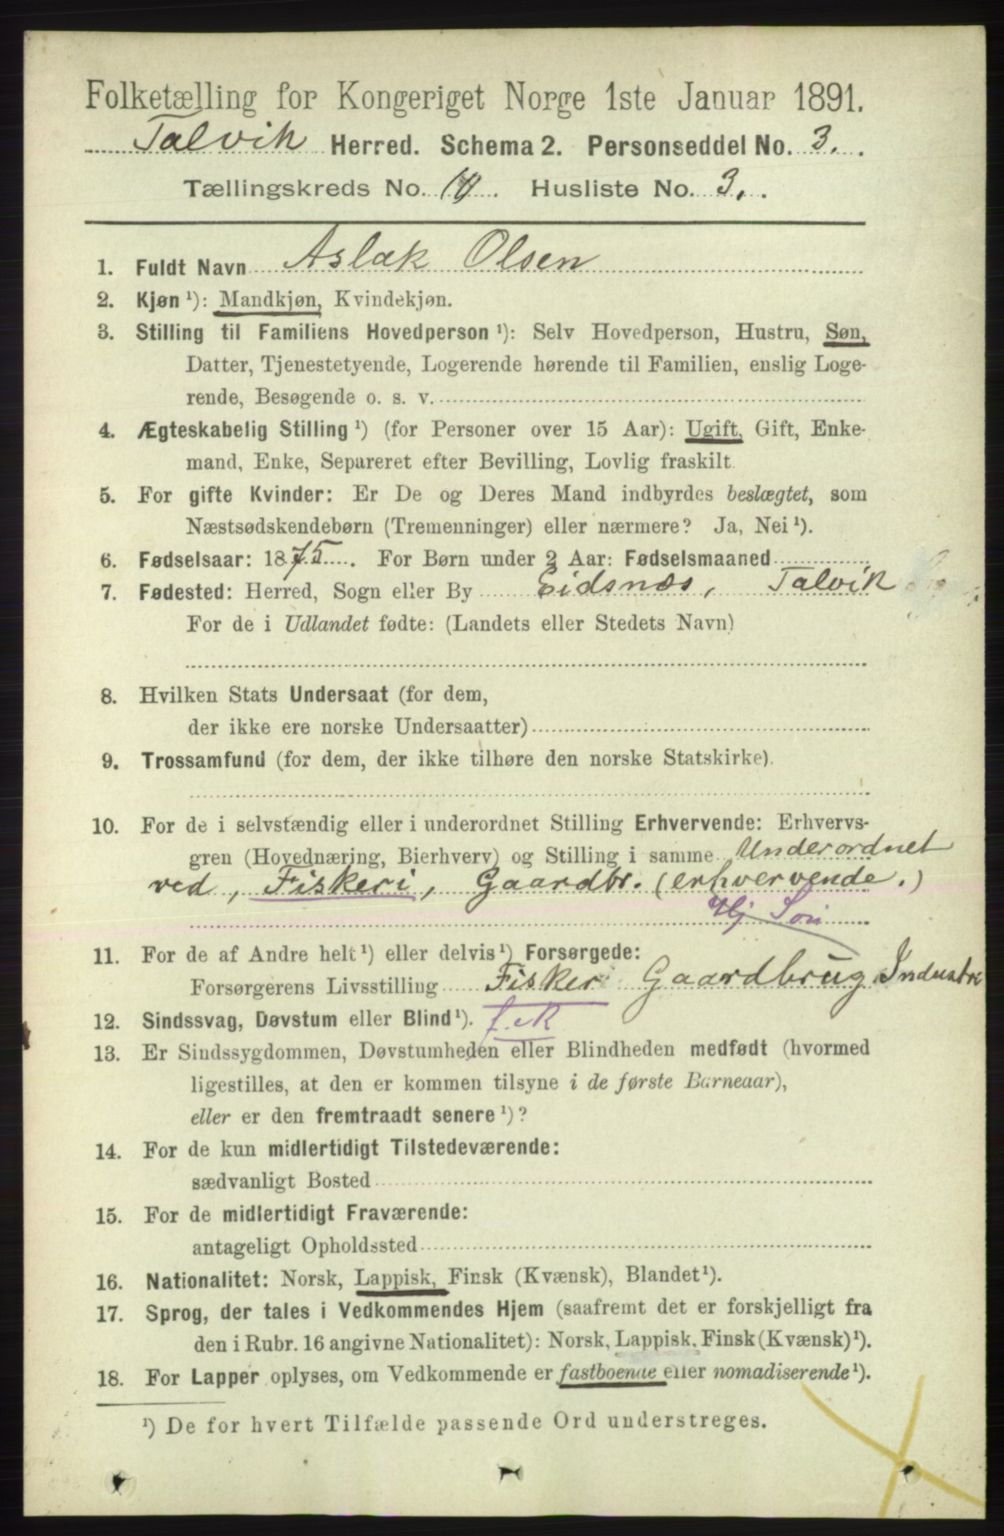 Folketælling for Kongeriget Norge 1ste Januar 1891.
Talvik Herred. Schema 2. Personseddel No. 3.
Tællingskreds No. Husliste No. 3.
1. Fuldt Navn Aslak Olsen
2. Kjøn ¹): Mandkjøn, Kvindekjøn.
3. Stilling til Familiens Hovedperson ¹): Selv Hovedperson, Hustru, Søn,
Datter, Tjenestetyende, Logerende hørende til Familien, enslig Loge-
rende, Besøgende o. s. v.
4. Ægteskabelig Stilling ¹) (for Personer over 15 Aar): Ugift, Gift, Enke-
mand, Enke, Separeret efter Bevilling, Lovlig fraskilt
5. For gifte Kvinder: Er De og Deres Mand indbyrdes beslægtet, som
Næstsødskendebørn (Tremenninger) eller nærmere? Ja, Nei ¹).
6. Fødselsaar: 1875. For Børn under 2 Aar: Fødselsmaaned
7. Fødested: Herred, Sogn eller By Eidsnæs, Talvik
For de i Udlandet fødte: (Landets eller Stedets Navn)
8. Hvilken Stats Undersaat (for dem,
der ikke ere norske Undersaatter)
9. Trossamfund (for dem, der ikke tilhøre den norske Statskirke).
10. For de i selvstændig eller i underordnet Stilling Erhvervende: Erhvervs-
gren (Hovednæring, Bierhverv) og Stilling i samme Underordnet
ved, Fiskeri, Gaardbr. (erhvervende.)
Hj Søn
11. For de af Andre helt ¹) eller delvis ¹) Forsørgede:
Forsørgerens Livsstilling Fiskeri Gaardbrug Industri
12. Sindssvag, Døvstum eller Blind ¹).
13. Er Sindssygdommen, Døvstumheden eller Blindheden medfødt (hvormed
ligestilles, at den er kommen tilsyne i de første Barneaar),
eller er den fremtraadt senere ¹)?
14. For de kun midlertidigt Tilstedeværende:
sædvanligt Bosted
15. For de midlertidigt Fraværende:
antageligt Opholdssted
16. Nationalitet: Norsk, Lappisk, Finsk (Kvænsk), Blandet ¹).
17. Sprog, der tales i Vedkommendes Hjem (saafremt det er forskjelligt fra
den i Rubr. 16 angivne Nationalitet): Norsk, Lappisk, Finsk (Kvænsk) ¹).
18. For Lapper oplyses, om Vedkommende er fastboende eller nomadiserende ¹).
¹) De for hvert Tilfælde passende Ord understreges.